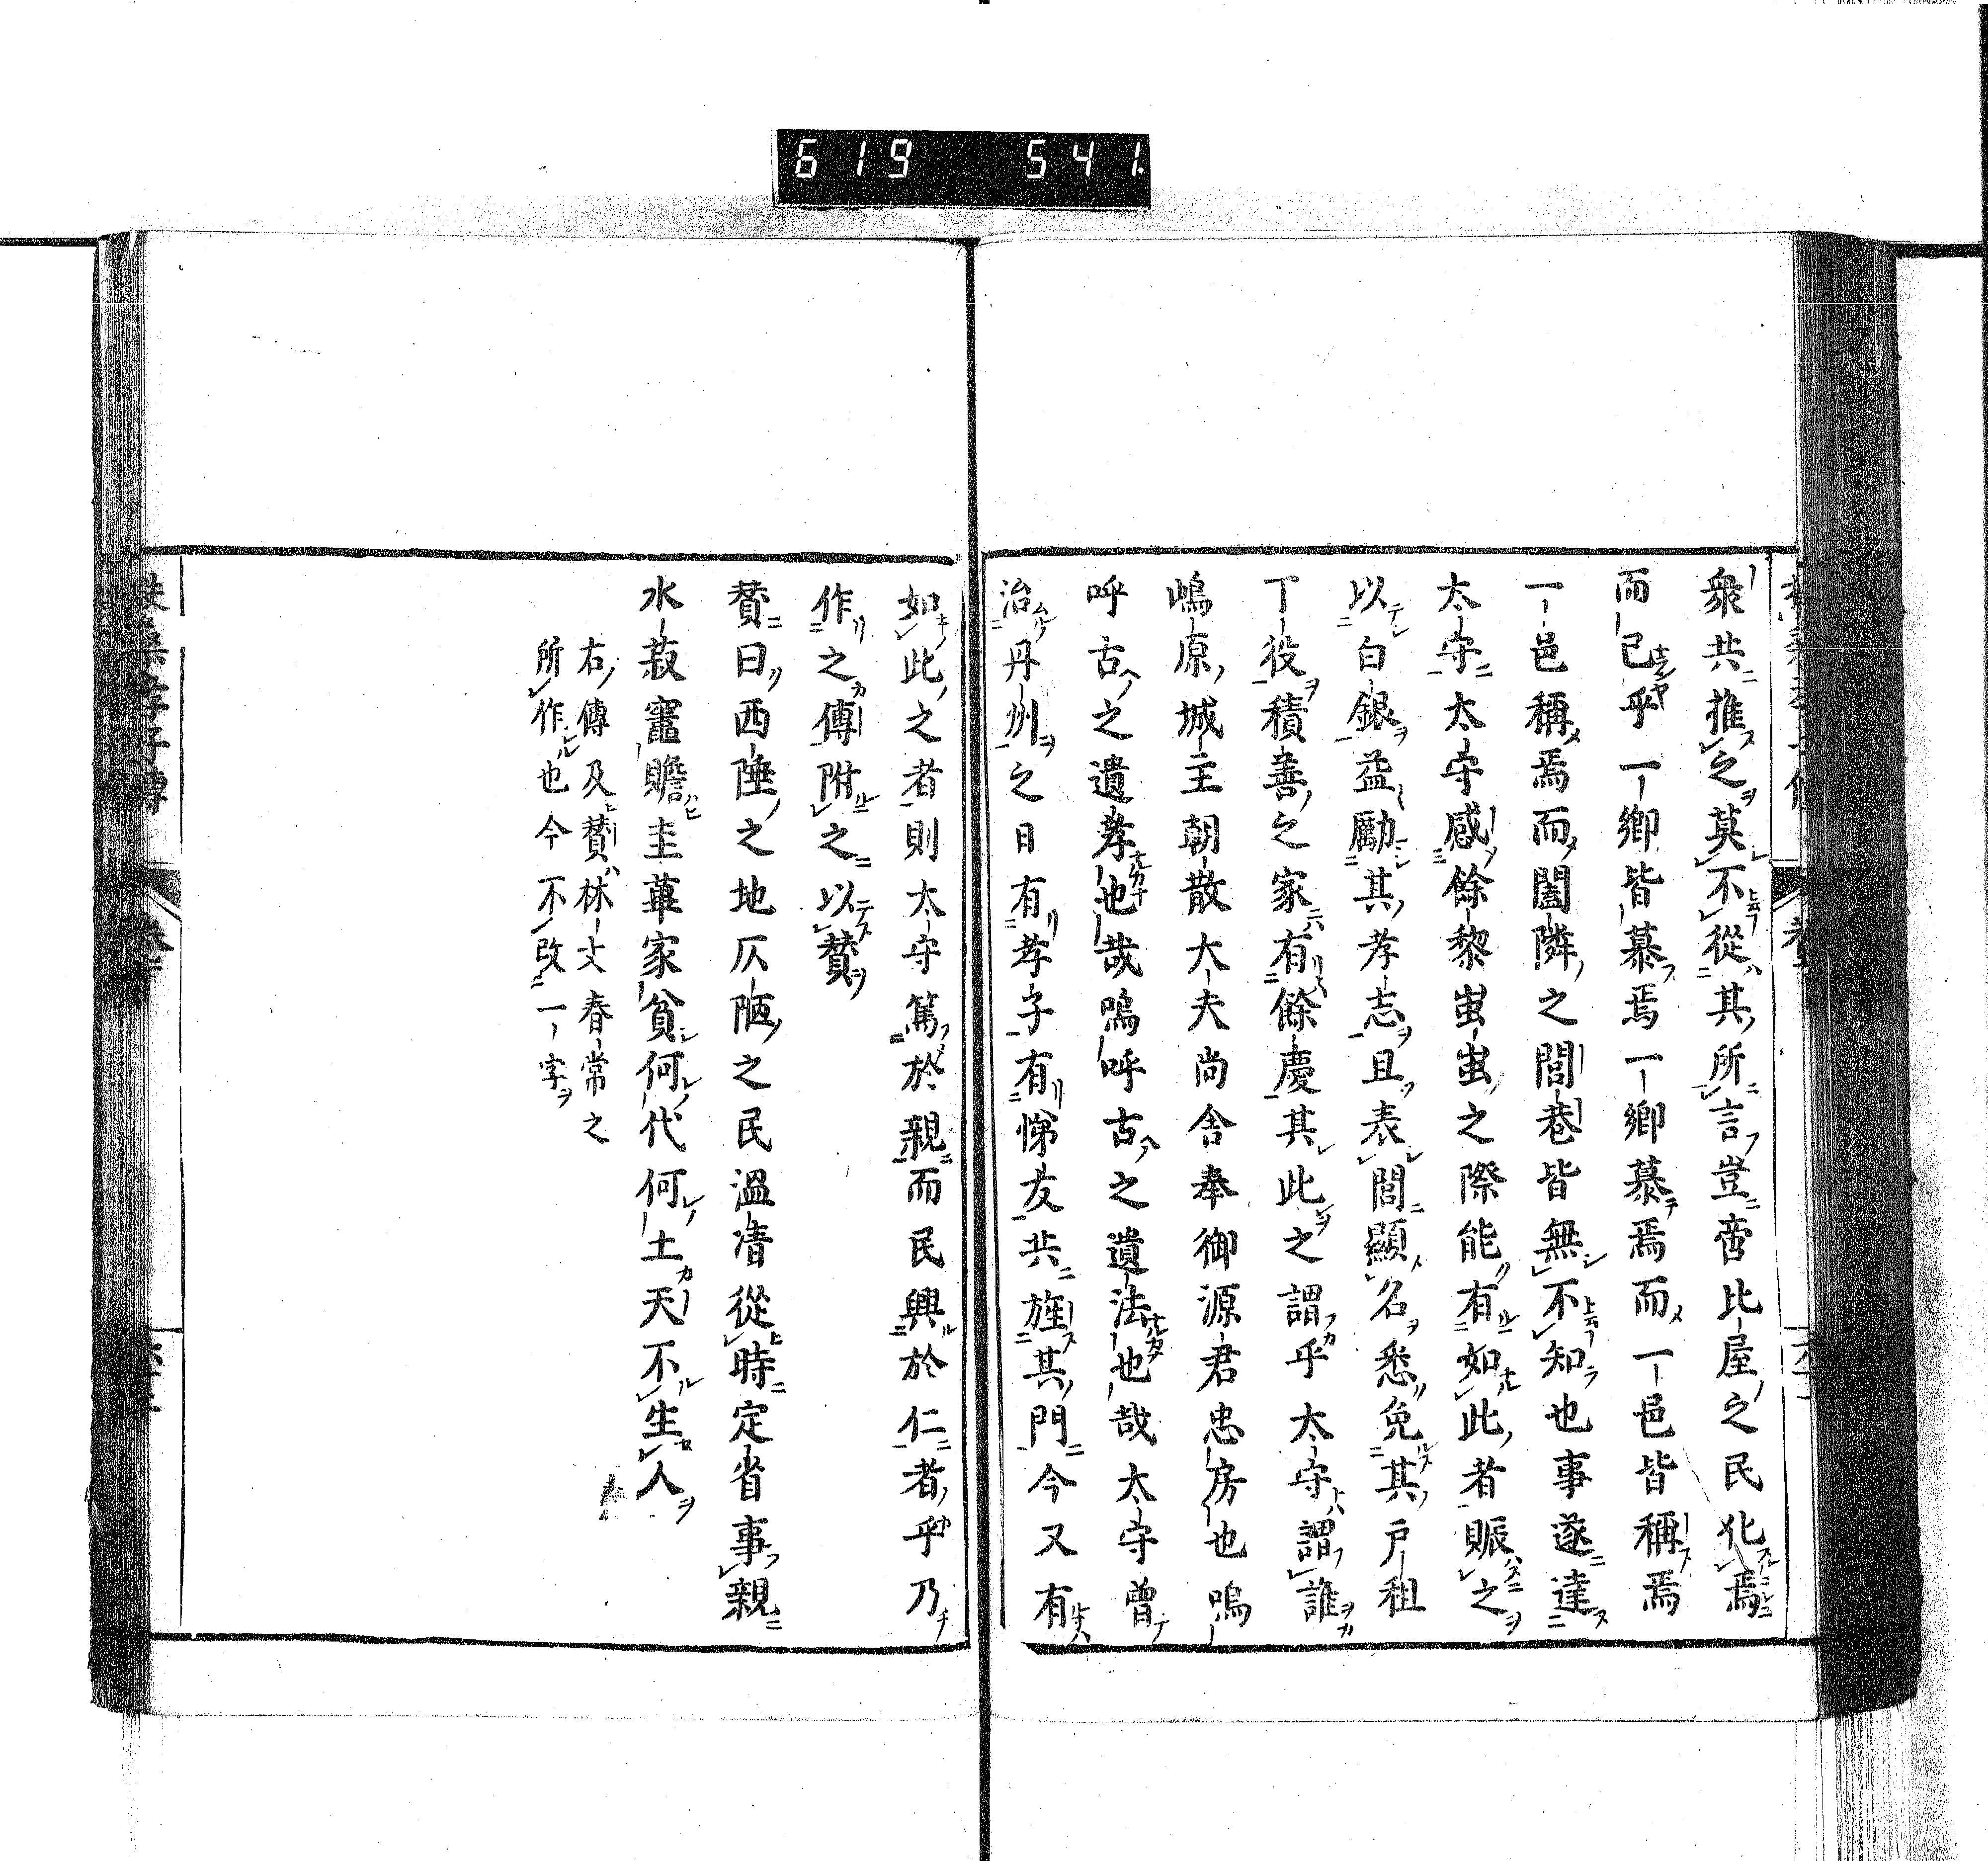 619 541.
衆共推之莫不從其所言豈啻比屋之民化焉
而已乎一鄉皆慕焉一鄉慕焉而一邑皆稱焉
一邑稱焉而闔隣之閭巷皆無不知也事遂達
太守太守感餘黎蚩蚩之際能有如此者賑之
以白銀益勵其孝志且表閭顯名悉免其戸租
丁役積善之家有餘慶其此之謂乎太守謂誰
嶋原城主朝散大夫尚舍奉御源君忠房也嗚
呼古之遺孝也哉嗚呼古之遺法也哉太守曾
治丹州之日有孝子有悌友共旌其門今又有
如此之者則太守篤於親而民興於仁者乎乃
作之傳附之以贊
贊曰西陲之地仄陋之民溫凊從時定省事親
水菽竈贍圭蓽家貧何代何土天不生人
右傳及贊林丈春常之
所作也今不改一字